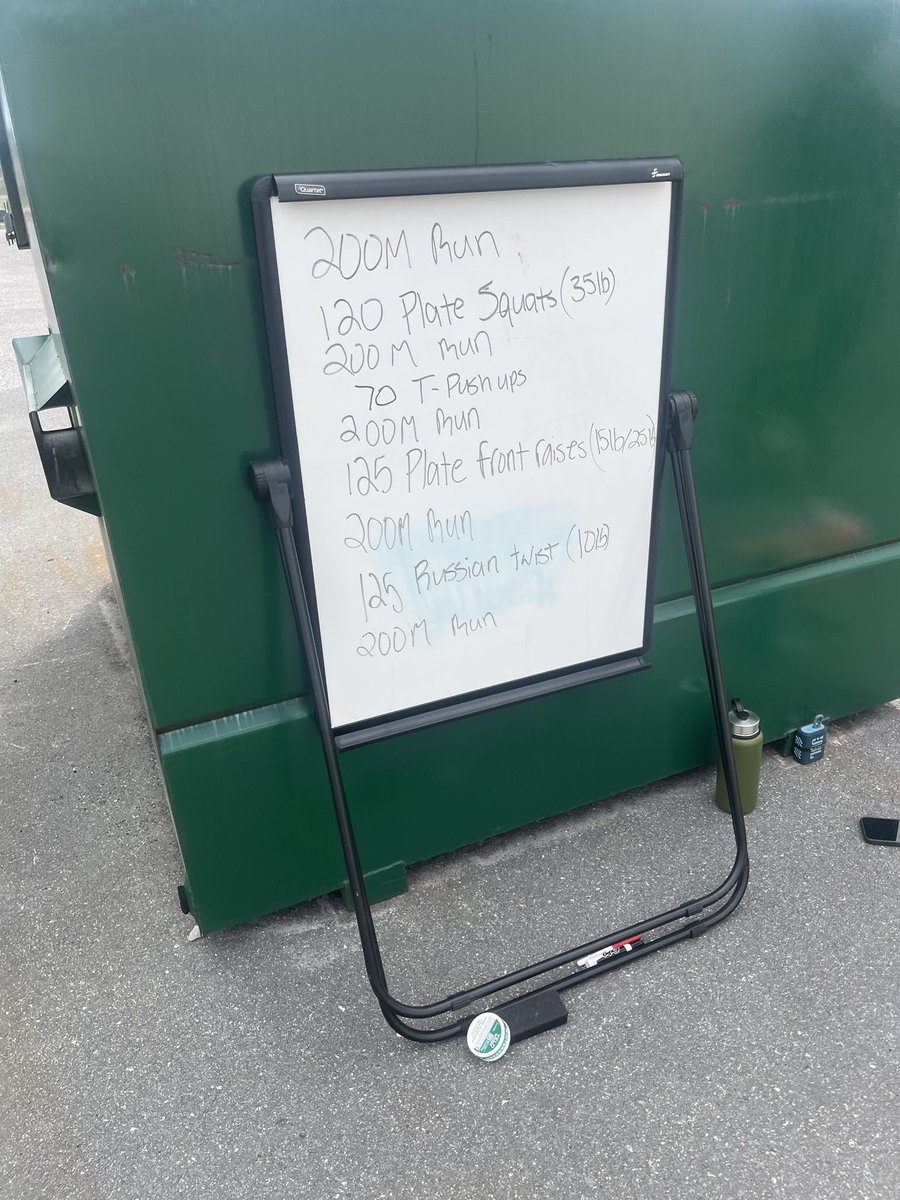 Quartet
200M Run
120 Plate Squats (35lb)
200M Run
70 T-Push ups
200M Run
125 Plate front raises (15lb/25lb
200M Run
125 Russian twist (10lb)
200M Run